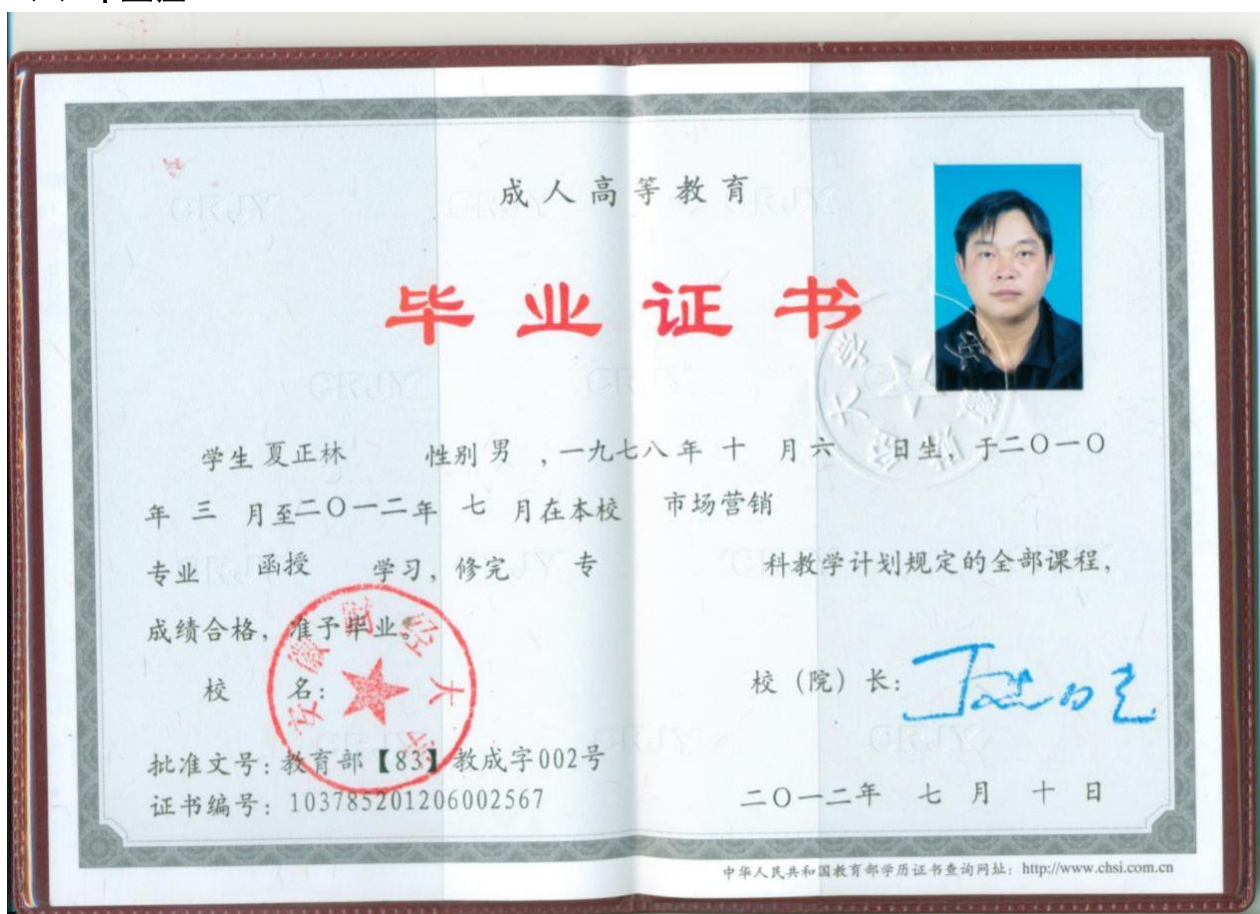 成人高等教育
毕业证书
学生 夏正林 性别 男 ,一九七八年 十 月 六 日生, 于二〇一〇
年 三 月至二〇一二年 七 月在本校 市场营销
专业 函授 学习, 修完 专 科教学计划规定的全部课程,
成绩合格, 准予毕业。
校 名:
安徽财经大学
校 (院) 长:
批准文号: 教育部【83】教成字002号
证书编号: 103785201206002567
二〇一二年 七 月 十 日
中华人民共和国教育部学历证书查询网址: http://www.chsi.com.cn